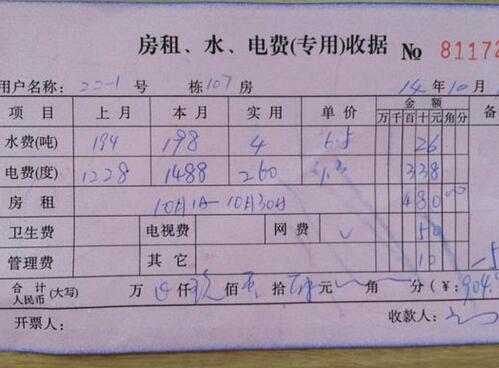 房租、水、电费(专用)收据 No 81172
用户名称: 22-1 号 栋107房 14年10月
项目 上月 本月 实用 单价 金额 备
万千百十元角分
水费(吨) 194 198 4 6.5 26
电费(度) 1228 1488 260 1.3 338
房租 10月1日-10月30日 480 00
卫生费 电视费 网费 50
管理费 其它 10
合计人民币(大写) 万 仟 玖 佰 零 拾 元 角 分(¥: 904
开票人: 收款人: